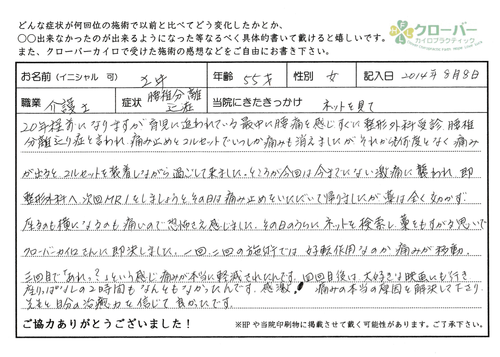 どんな症状が何回位の施術で以前と比べてどう変化したかとか、
○○出来なかったのが出来るようになった等なるべく具体的書いて戴けると嬉しいです。
また、クローバーカイロで受けた施術の感想などをご自由にお書き下さい。
クローバー
カイロプラクティック
お名前(イニシャル 可) 年齢 55才 性別 女 記入日 2014年8月8日
職業 介護士 症状 腰椎分離 症 当院にきたきっかけ ネットを見て
20年程前になりますが育児に追われている最中に腰痛を感じすぐに整形外科受診 腰椎
分離 り症と言われ 痛み止めとコルセットでいつしか痛みも消えましたが それから何度となく痛み
が出るとコルセットを装着しながら過ごして来ました。ところが今回は今までにない激痛に襲われ 即
整形外科へ 次回MRIをしましょうと その日は痛み止めをいただいて帰りましたが 薬は全く効かず
座るのも横になるのも痛いので恐怖さえ感じました。その日のうちにネットを検索し藁をもすがる思いで
クローバーカイロさんに即決しました。一回、二回の施術では好転作用なのか痛みが移動。
三回目で「あれっ?」という感じ 痛みが本当に軽減されたんです。四回目後は大好きな映画にも行き
座りっぱなしの2時間もなんともなかったんです。感激! 痛みの本当の原因を解決して下さり
先生と自分の治癒力を信じて良かったです。
ご協力ありがとうございました!
※HPや当院印刷物に掲載させて戴く可能性があります。ご了承下さい。